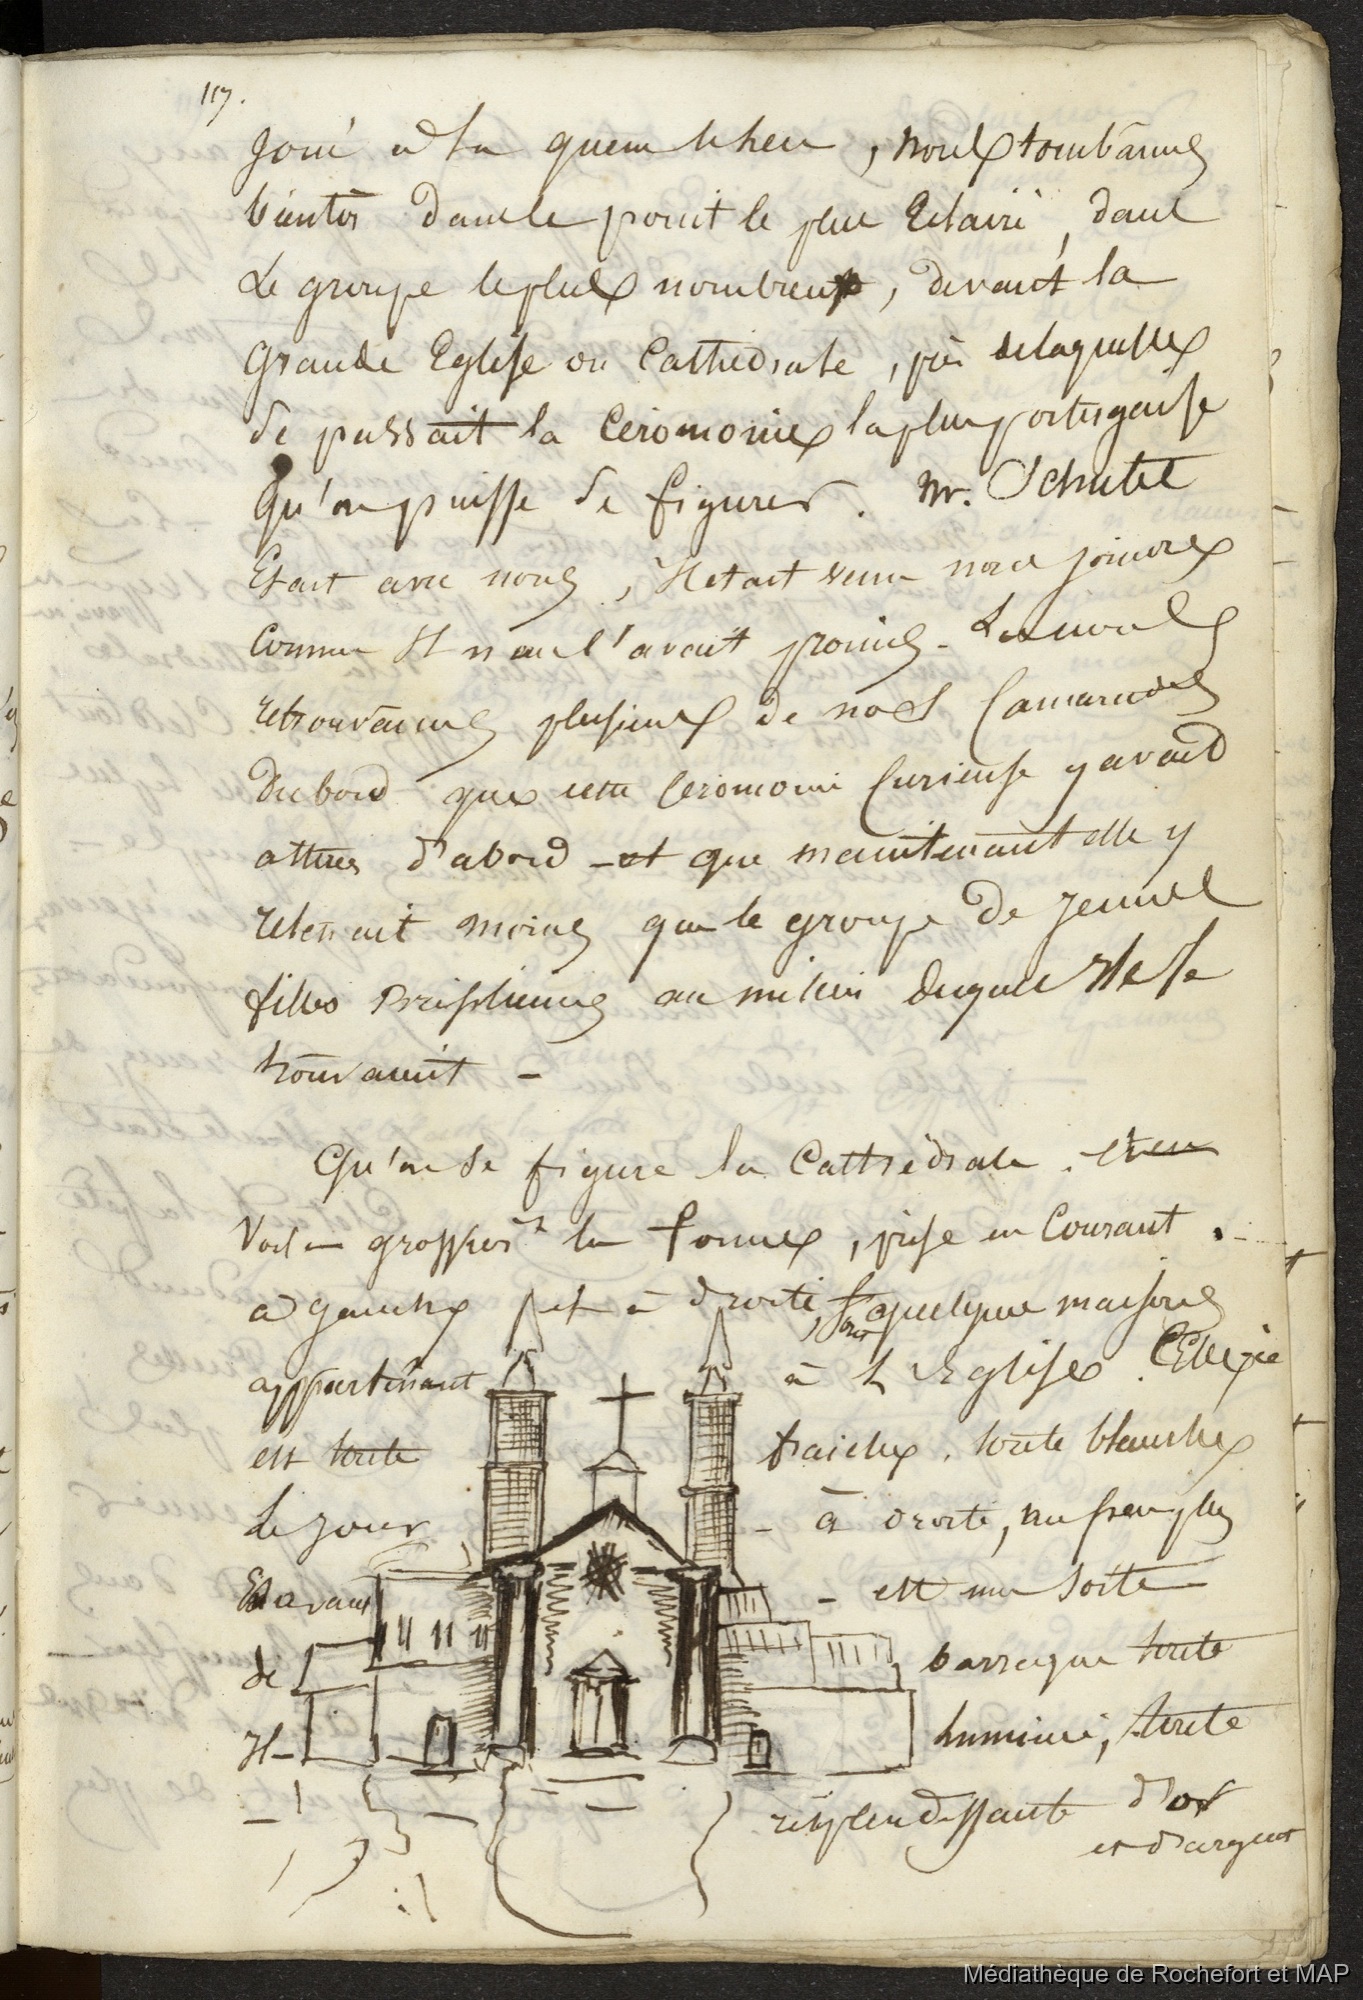 117.
joué à la queue leu leu, nous tombâmes
bientôt dans le point le plus Eclairé, dans
Le groupe le plus nombreux, devant la
grande Eglise ou Cathédrale, près de laquelle
se passait la Cérémonie la plus portugaise
qu'on puisse se figurer. Mr. Schutel
Etait avec nous, Il etait venu nous joindre
Comme Il nous l'avait promis - Là nous
retrouvâmes plusieurs de nos Camarades
du bord que cette Cérémonie Curieuse y avait
attirés d'abord - et que maintenant elle y
retenait moins que le groupe de jeunes
filles Brésiliennes au milieu duquel Ils se
trouvaient -
Qu'on se figure la Cathédrale. et en
Voilà grossièrt la forme, prise en Courant.
à gauche et à droite, sont quelques maisons
appartenant à L'Eglise. Elle
est toute fraiche. toute blanche
Le jour - à droite,
Et avant - est une sorte
de baraque toute
Il- luminée, toute
resplendissante d'or
et d'argent
Médiathèque de Rochefort et MAP